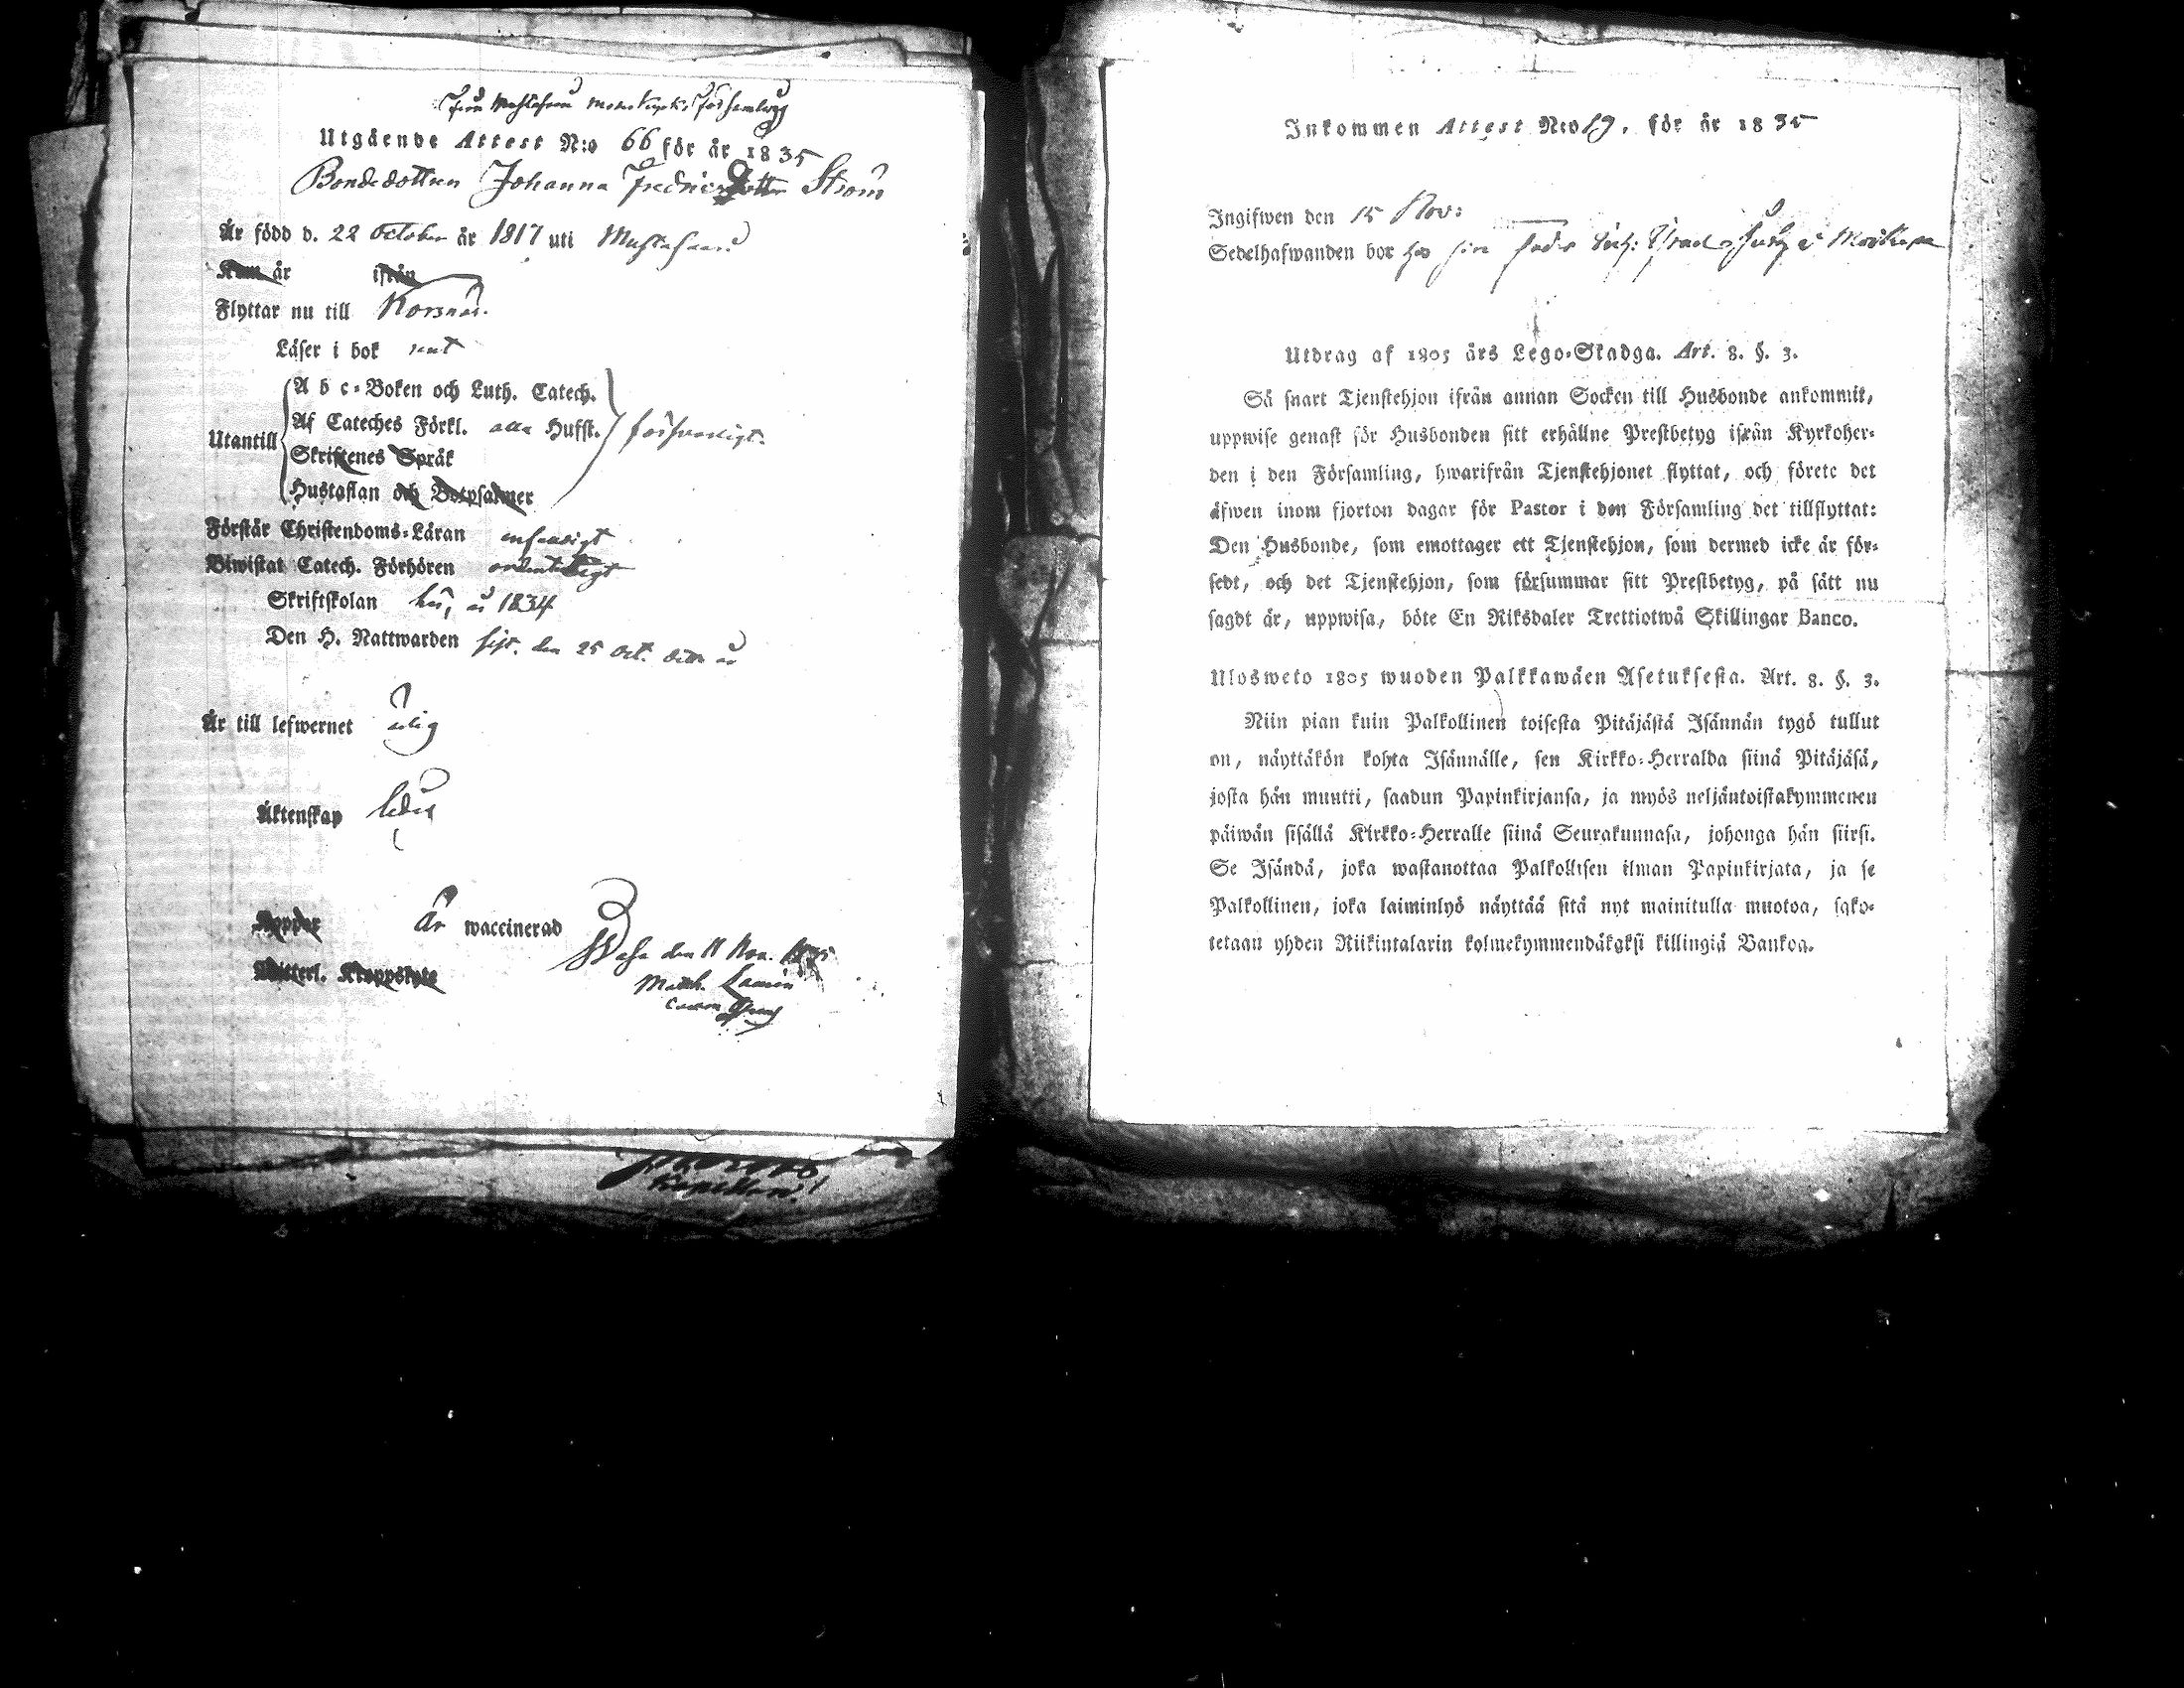 från Mustasaari moderkyrko församling
Utgående Attest N:o 66 för år 1835
Bondedottren Johanna Fredricsdotter Ström
Är född d. 22 October år 1817 uti Mustasaari
Kom år ifrån
Flyttar nu till Korsnäs.
Läser i bok rent
A b c-Boken och Luth. Catech.
Af Cateches Förkl. alla Hufst. försvarligt.
Utantill
Skriftenes Språk
Hustaflan och Botpsalmer
Förstår Christendoms-Läran enfaldigt
Biwistat Catech. Förhören ordentligt
Skriftskolan här, år 1834
Den H. Nattwarden sist. den 25 Oct. detta år
Är till lefwernet ärlig
Äktenskap ledig
Koppor Är waccinerad
Wasa den 11 Nov. 1835
Witterl. Kroppslyte
Math.
Kapellan
Inkommen Attest N:o 19. för år 1835
Ingifwen den 15 Nov:
Sedelhafwanden bor hos sin
Utdrag af 1805 års Lego-Stadga. Art. 8. §. 3.
Så snart Tjenstehjon ifrån annan Socken till Husbonde ankommit,
uppwise genast för Husbonden sitt erhållne Prestbetyg ifrån Kyrkoher-
den i den Församling, hwarifrån Tjenstehjonet flyttat, och förete det
äfwen inom fjorton dagar för Pastor i den Församling det tillflyttat:
Den Husbonde, som emottager ett Tjenstehjon, som dermed icke är för-
sedt, och det Tjenstehjon, som försummar sitt Prestbetyg, på sätt nu
sagdt är, uppwisa, böte En Riksdaler Trettiotwå Skillingar Banco.
Ulosweto 1805 wuoden Palkkawäen Asetuksesta. Art. 8. §. 3.
Niin pian kuin Palkollinen toisesta Pitäjästä Isännän tygö tullut
on, näyttäkön kohta Isännälle, sen Kirkko-Herralda siinä Pitäjäsä,
josta hän muutti, saadun Papinkirjansa, ja myös neljäntoistakymmenen
päiwän sisällä Kirkko-Herralle siinä Seurakunnasa, johonga hän siirsi.
Se Isändä, joka wastanottaa Palkollisen ilman Papinkirjata, ja se
Palkollinen, joka laiminlyö näyttää sitä nyt mainitulla muotoa, sako-
tetaan yhden Riikintalarin kolmekymmendäkaksi killingiä Bankoa.